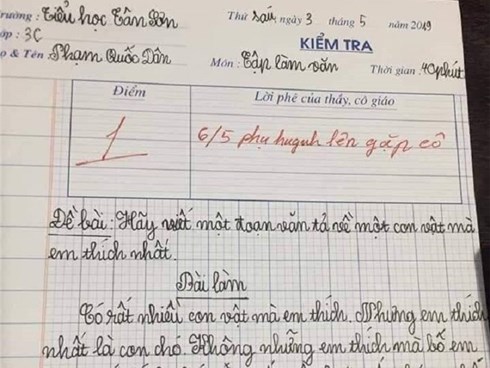 rường: Tiểu học Tân Sơn
Thứ sáu, ngày 3 tháng 5 năm 2019
ớp: 3C
KIỂM TRA
ọ & Tên Phạm Quốc Dân
Môn: Tập làm văn
Thời gian: 40 phút
Điểm
Lời phê của thầy, cô giáo
1
6/5 phụ huynh lên gặp cô
Đề bài: Hãy viết một đoạn văn tả về một con vật mà
em thích nhất.
Bài làm
Có rất nhiều con vật mà em thích. Nhưng em thích
nhất là con chó. Không những em thích mà bố em